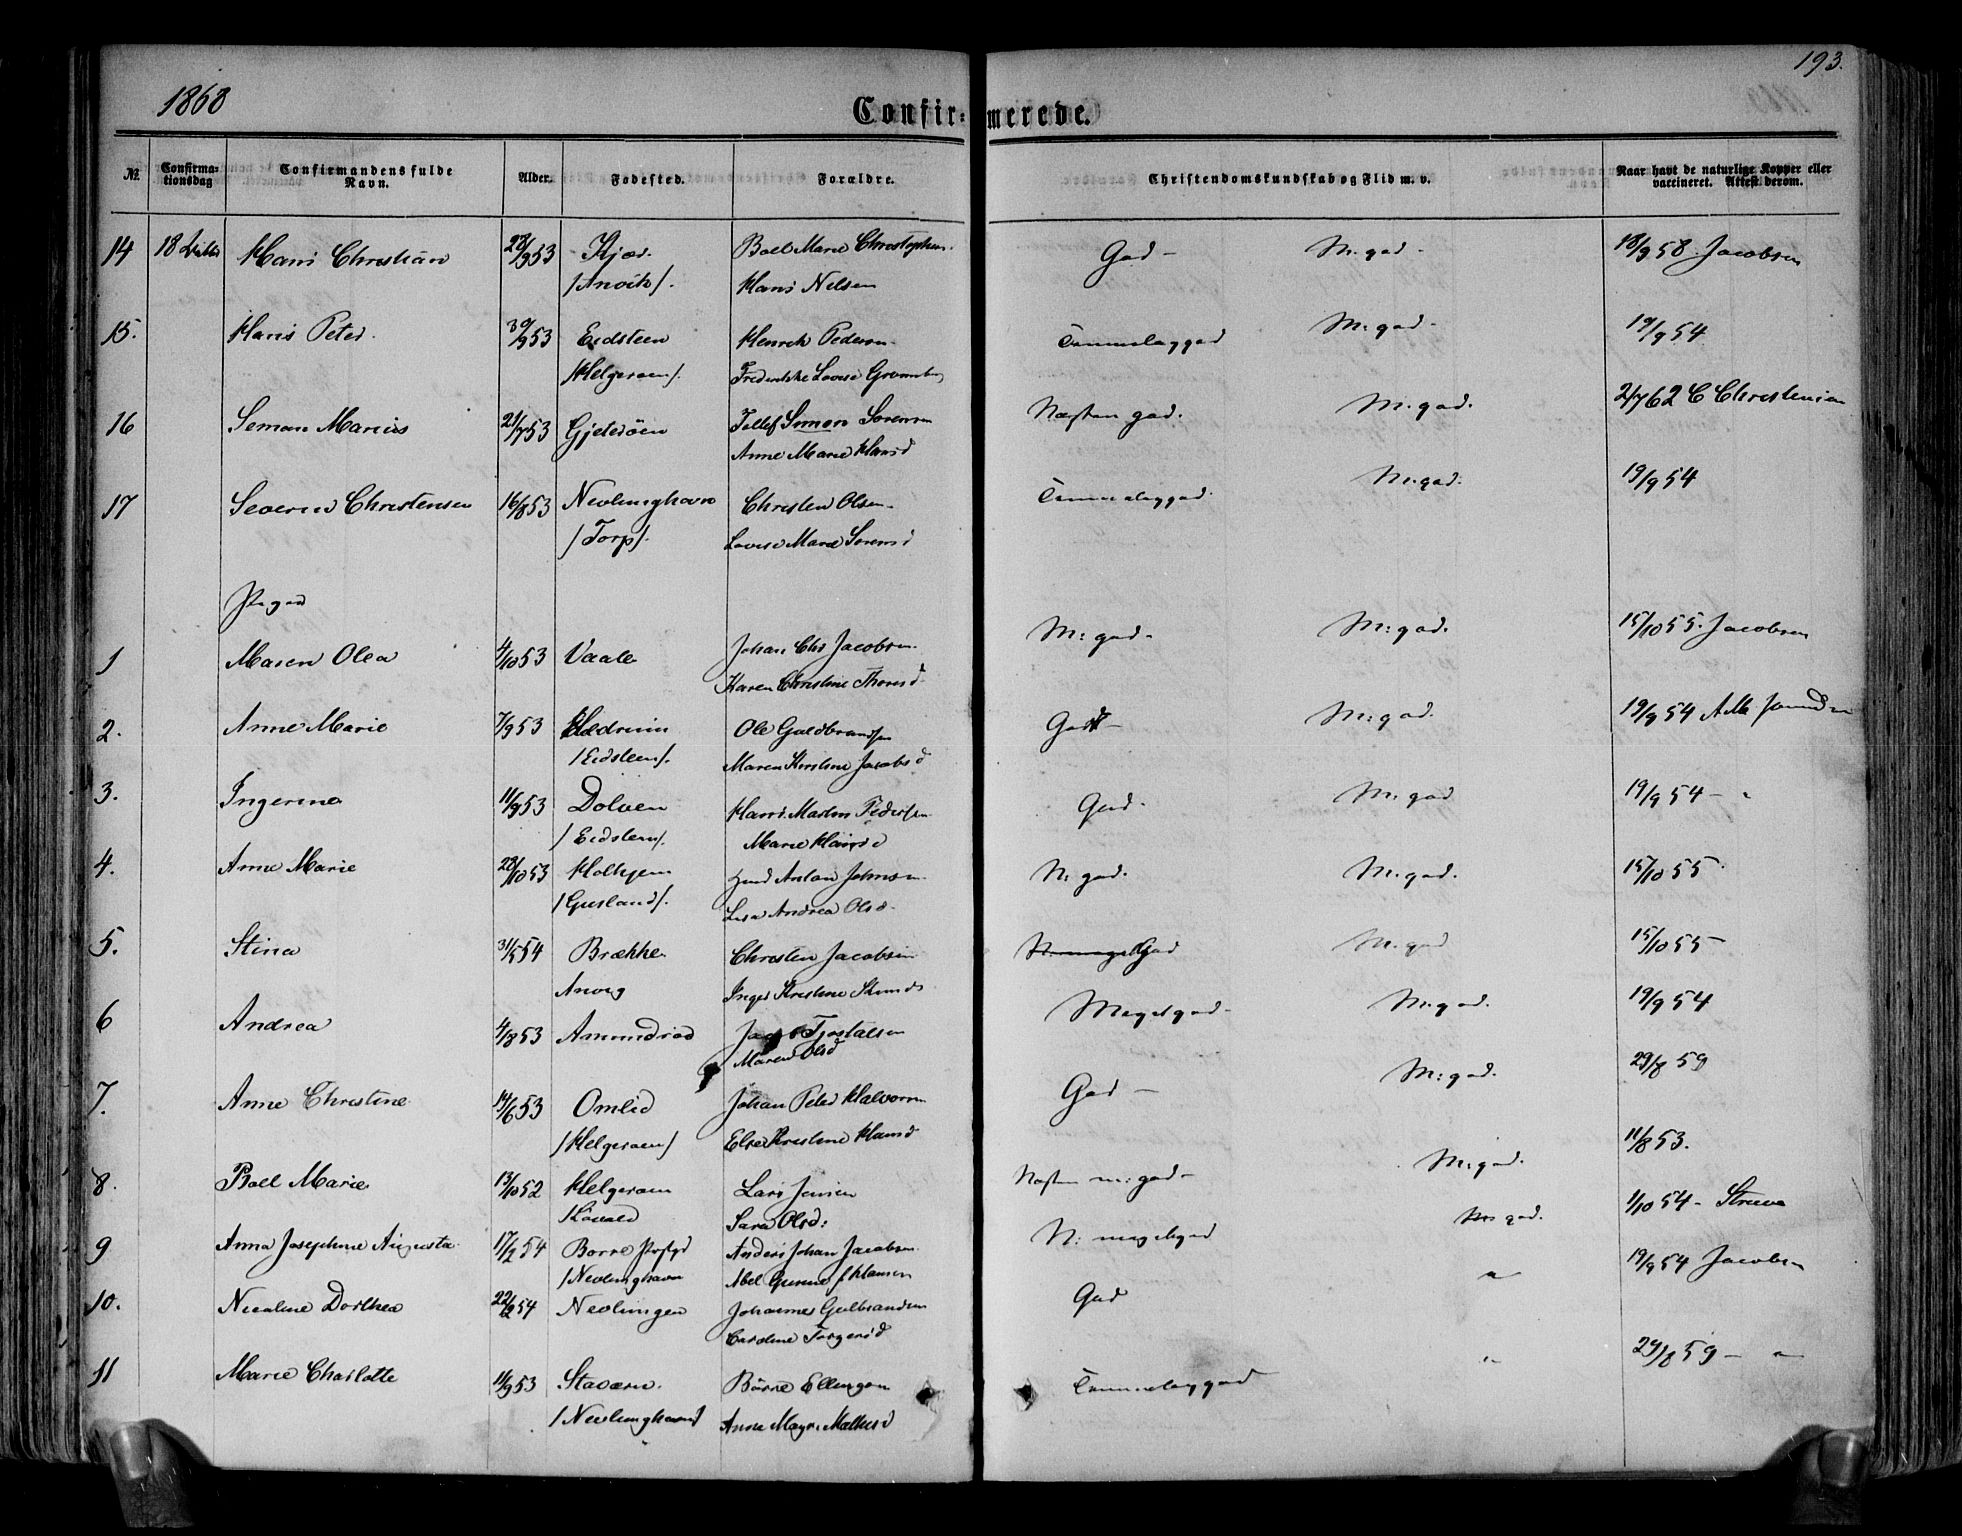 193.
1868
Confirmerede.
No.
Confirmationsdag
Confirmandens fulde Navn.
Alder.
Fødested.
Forældre.
Christendomskundskab og Flid m. v.
Naar havt de naturlige Kopper eller vaccineret. Attest derom.
14 Hans Christian 28/9 53 Kjær Boel Marie M. god 18/9 58 Jacobsen
God
Hans Nilsen
15. Hans Peter 30/9 53 Eidsteen Henrik Pedersen Temmelig god M. god 19/9 54
/Helgeroen/. Frederikke Lovise
16 Marius 21/7 53 Gjeterøen Simon Sørensen Næsten god. M. god. 2/7 62 C Christensen
Anne Marie Hansd
17 Severin Christensen 16/8 53 Nevlunghavn Christen Olsen Temmelig god. M. god. 19/9 54
/Torp/. Lovise Marie Sørensd
Piger
1 Maren Olea 4/10 53 Vaale Johan Chr Jacobsen M: god M: god. 15/10 55. Jacobsen
Karen Christine Thoresd
2. Anne Marie 7/9 53 Hedrum Ole Guldbrandsen God M: god. 19/9 54
/Eidsteen/. Maren Kirstine Jacobsd
3. Ingerine 11/9 53 Dolven Hans Martin Pedersen God. M. god 19/9 54 - "
/Eidsteen/. Marie Hansd
4. Anne Marie 28/10 53 Anton Johnsen N: god. M. god. 15/10 55
/Gusland/. Lisa Andrea Olsd
5. Stina 31/5 54 Brække Christen Jacobsen God M. god 15/10 55
Anvig Inger Kirstine
6 Andrea 4/8 53 Amundrød Jacob Tjostelsen Meget god M. god. 19/9 54
Maren Olsd
7. Anne Christine 14/6 53 Omlid Johan Peter Halvorsen God M: god. 29/8 59
/Helgeroen/ Else Kirstine Hansd
8. Boel Marie 13/10 52 Helgeroen Lars Jensen Næsten m: god M: god. 11/8 53.
Sara Olsd:
9 Anna Josephine Augusta 17/2 54 Borre Prstgd Anders Johan Jacobsen N: meget god M: god. 1/10 54 - Struve
/Nevlunghavn Abel Gurine Hansen
10. Nicoline Dorthea 22/2 54 Nevlungen Johannes Gulbrandsen God " 19/9 54 Jacobsen
Caroline Torgersd
11 Marie Charlotte 11/9 53 Stavern. Børre Ellingsen Temmelig god " 29/8 59 - "
/Nevlunghavn/ Anne